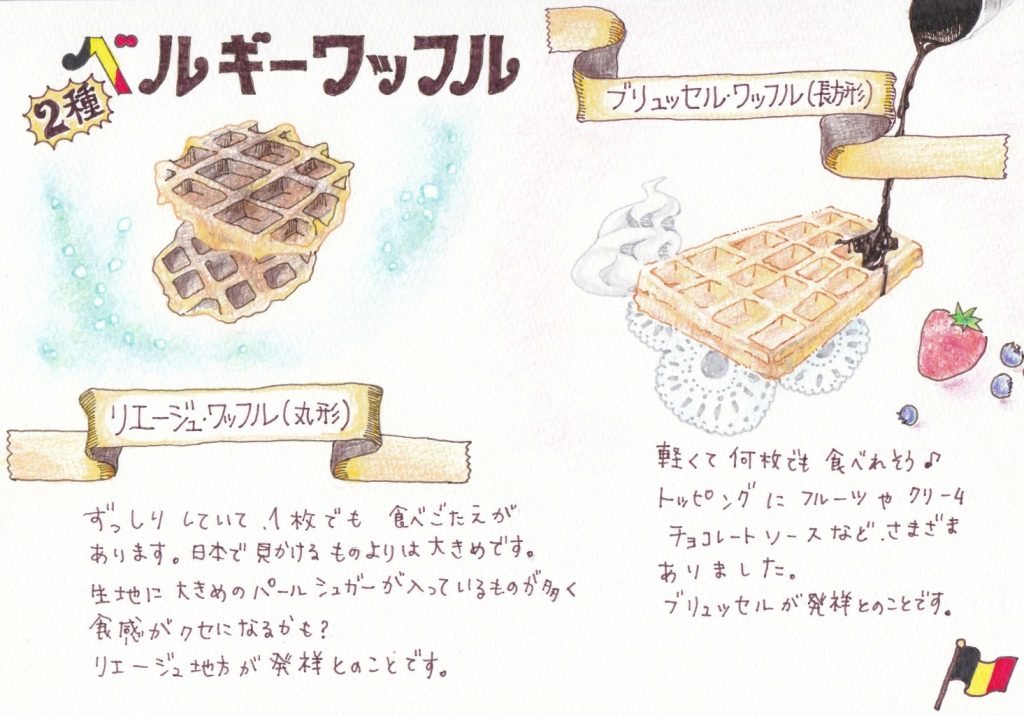 ベルギーワッフル
2種
リエージュ・ワッフル(丸形)
ずっしりしていて、1枚でも 食べごたえが
あります。日本で見かけるものよりは大きめです。
生地に大きめのパールシュガーが入っているものが多く
食感がクセになるかも?
リエージュ地方が発祥とのことです。
ブリュッセル・ワッフル(長方形)
軽くて何枚でも食べれそう♪
トッピングにフルーツやクリーム
チョコレートソースなど、さまざま
ありました。
ブリュッセルが発祥とのことです。